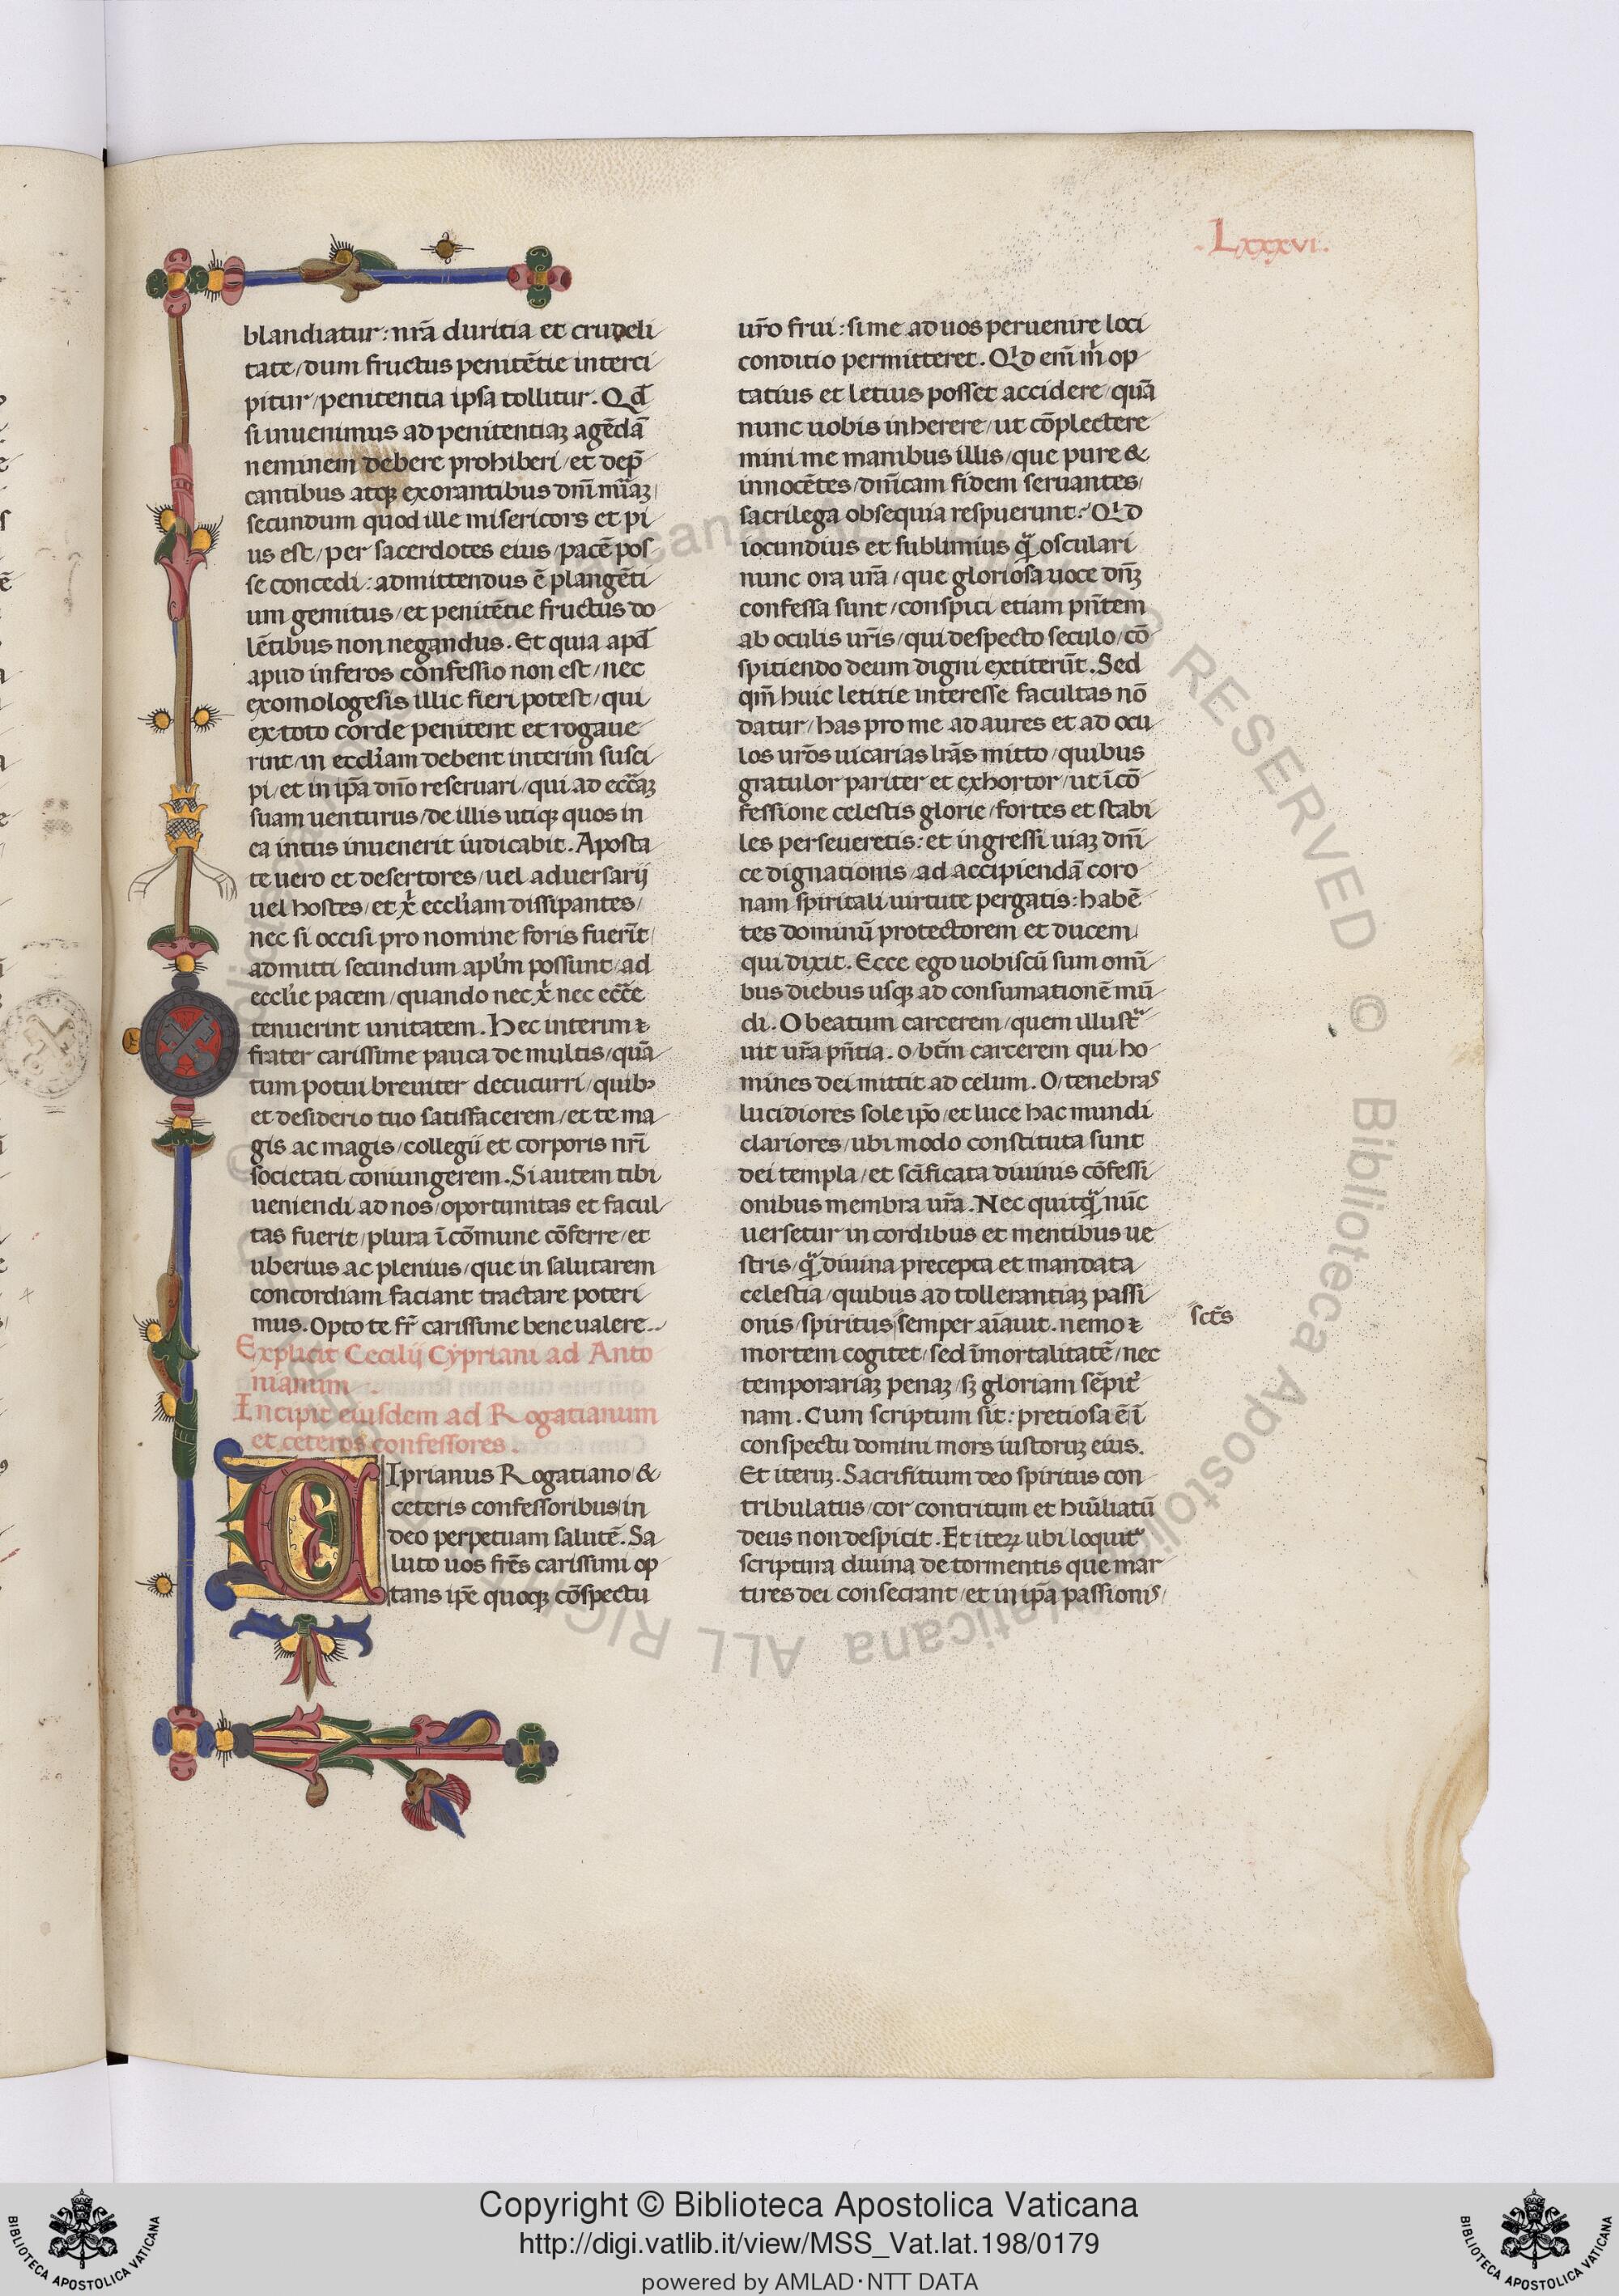 .Lxxxvi.
blandiatur: nrā duritia et crudeli
tate/dum fructus penitētie interci
pitur/penitentia ipsa tollitur. Qđ
si inuenimus ad penitentiaꝫ agēdā
neminem debere prohiberi/et dep̄
cantibus atqꝫ exorantibus dnī mīaꝫ/
secundum quod ille misericors et pi
us est/per sacerdotes eius/pacē pos
se concedi: admittendus ē plangēti
um gemitus/et penitētie fructus do
lētibus non negandus. Et quia apđ
apud inferos confessio non est/nec
exomologesis illic fieri potest/qui
ex toto corde penitent et rogaue
rint/in eccłiam debent interim susci
pi/et in ip̄a dnō reseruari/qui ad ecc̄aꝫ
suam uenturus/de illis utiqꝫ quos in
ea intus inuenerit iudicabit. Aposta
te uero et desertores/uel aduersarij
uel hostes/et x̄ eccłiam dissipantes/
nec si occisi pro nomine foris fuerīt/
admitti secundum apłm possunt/ad
eccłie pacem/quando nec x̄ nec ecc̄e
tenuerint unitatem. Hec interim ⁊
frater carissime pauca de multis/quā
tum potui breuiter decucurri/quibꝫ
et desiderio tuo satisfacerem/et te ma
gis ac magis/collegii et corporis nrī
societati coniungerem. Si autem tibi
ueniendi ad nos/oportunitas et facul
tas fuerit/plura ī cōmune cōferre/et
uberius ac plenius/que in salutarem
concordiam faciant tractare poteri
mus. Opto te fr̄ carissime bene ualere..
Explicit Cecilij Cẏpriani ad Anto
nianum
Incipit eiusdem ad Rogatianum
et ceteros confessores.
CIprianus Rogatiano &
ceteris confessoribus in
deo perpetuam salutē. Sa
luto uos frēs carissimi op
tans ip̄e quoqꝫ cōspectu
urō frui: si me ad uos peruenire loci
conditio permitteret. Qid enī m̄ op
tatius et letius posset accidere/quā
nunc uobis inherere/ut cōplectere
mini me manibus illis/que pure &
innocētes/dnīcam fidem seruantes/
sacrilega obsequia respuerunt. Qid
iocundius et sublimius qꝫ̄ osculari
nunc ora urā/que gloriosa uoce dnꝫ̄
confessa sunt/conspici etiam pn̄tem
ab oculis urīs/qui despecto seculo/cō
spitiendo deum digni extiterūt. Sed
qm̄ huic letitie interesse facultas nō
datur/has pro me ad aures et ad ocu
los urōs uicarias lrās mitto/quibus
gratulor pariter et exhortor/ut ī cō
fessione celestis glorie/fortes et stabi
les perseueretis: et ingressi uiaꝫ dnī
ce dignationis/ad accipiendā coro
nam spiritali uirtute pergatis: habē
tes dominū protectorem et ducem/
qui dixit. Ecce ego uobiscū sum omī
bus diebus usqꝫ ad consumationē mū
di. O beatum carcerem/quem illustᵃ
uit urā pn̄tia. o/btm̄ carcerem qui ho
mines dei mittit ad celum. O/tenebras
lucidiores sole ip̄o/et luce hac mundi
clariores/ubi modo constituta sunt
dei templa/et sc̄ificata diuinis cōfessi
onibus membra urā. Nec quitqꝫ̄ nūc
uersetur in cordibus et mentibus ue
stris/qꝫ̄ diuina precepta et mandata
celestia/quibus ad tollerantiaꝫ passi
onis/spiritus semper aīauit. nemo ⁊
sctūs
mortem cogitet/sed īmortalitatē/nec
temporariaꝫ penaꝫ/sꝫ gloriam sēpit̄
nam. Cum scriptum sit: pretiosa ē ī
conspectu domini mors iustoruꝫ eius.
Et iteruꝫ. Sacrifitium deo spiritus con
tribulatus/cor contritum et hūiliatū
deus non despicit. Et iteꝝ ubi loquit᷑
scriptura diuina de tormentis que mar
tires dei consecrant/et in ip̄a passionis/
Copyright © Biblioteca Apostolica Vaticana
http://digi.vatlib.it/view/MSS_Vat.lat.198/0179
powered by AMLAD·NTT DATA